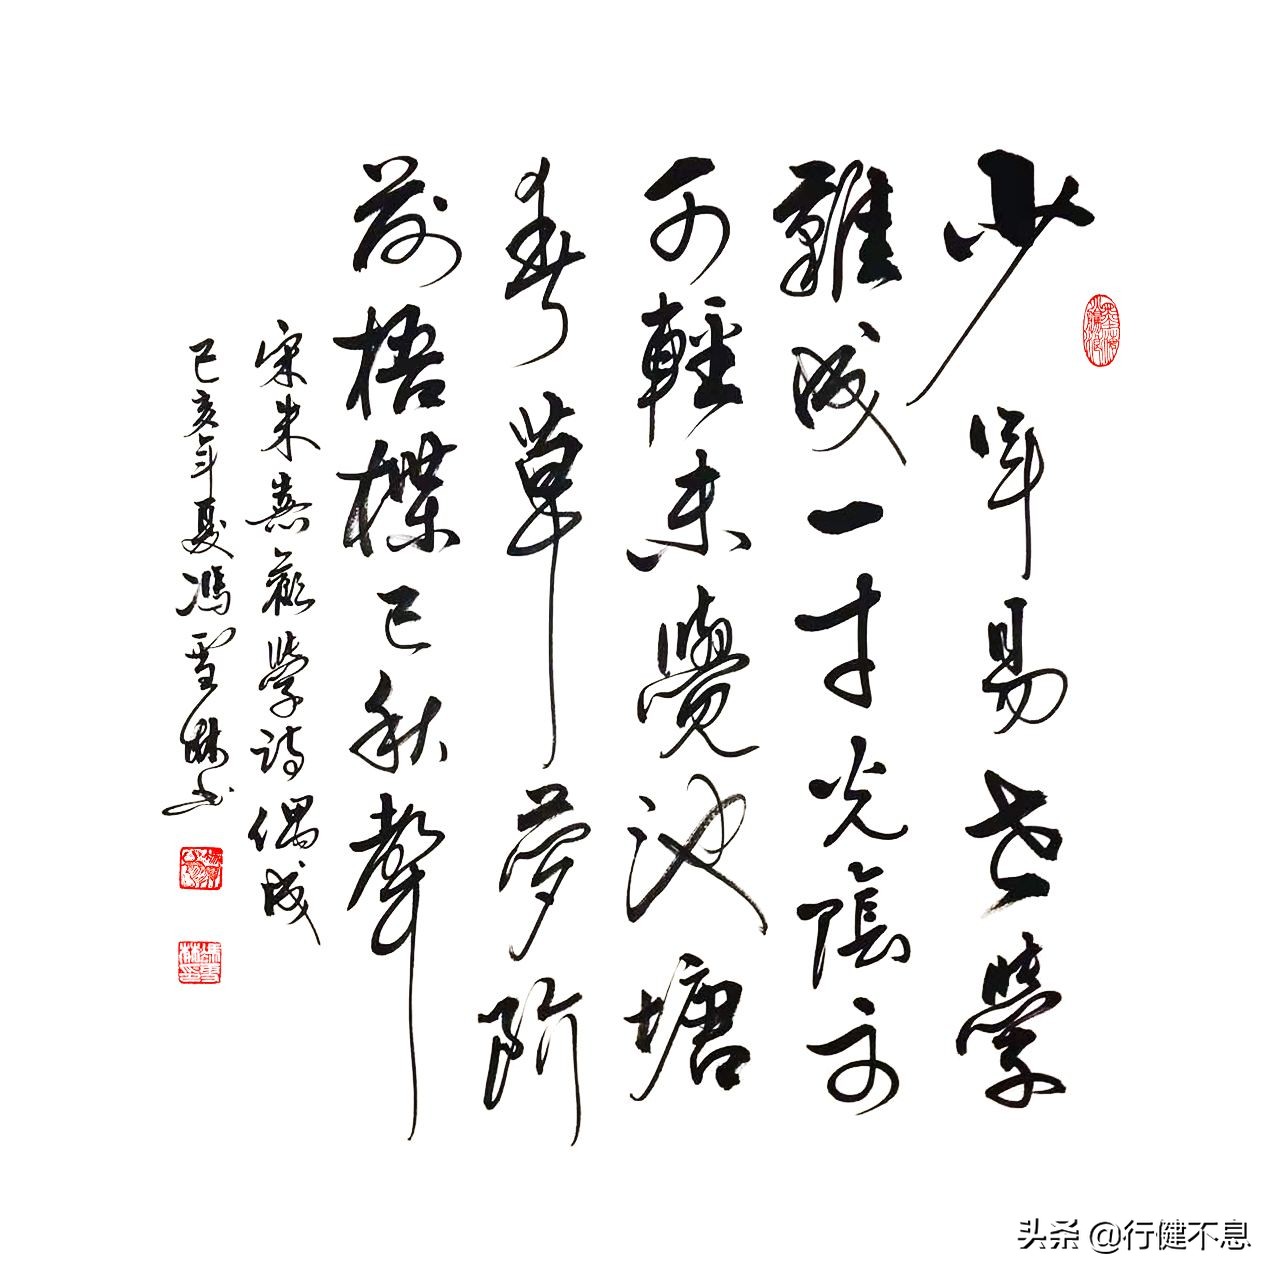 少年易老學
難成一寸光陰不
可輕未覺池塘
春草夢階
前梧楪已秋聲
宋朱熹勸學詩偶成
己亥年夏馮雪林書
頭条 @行健不息